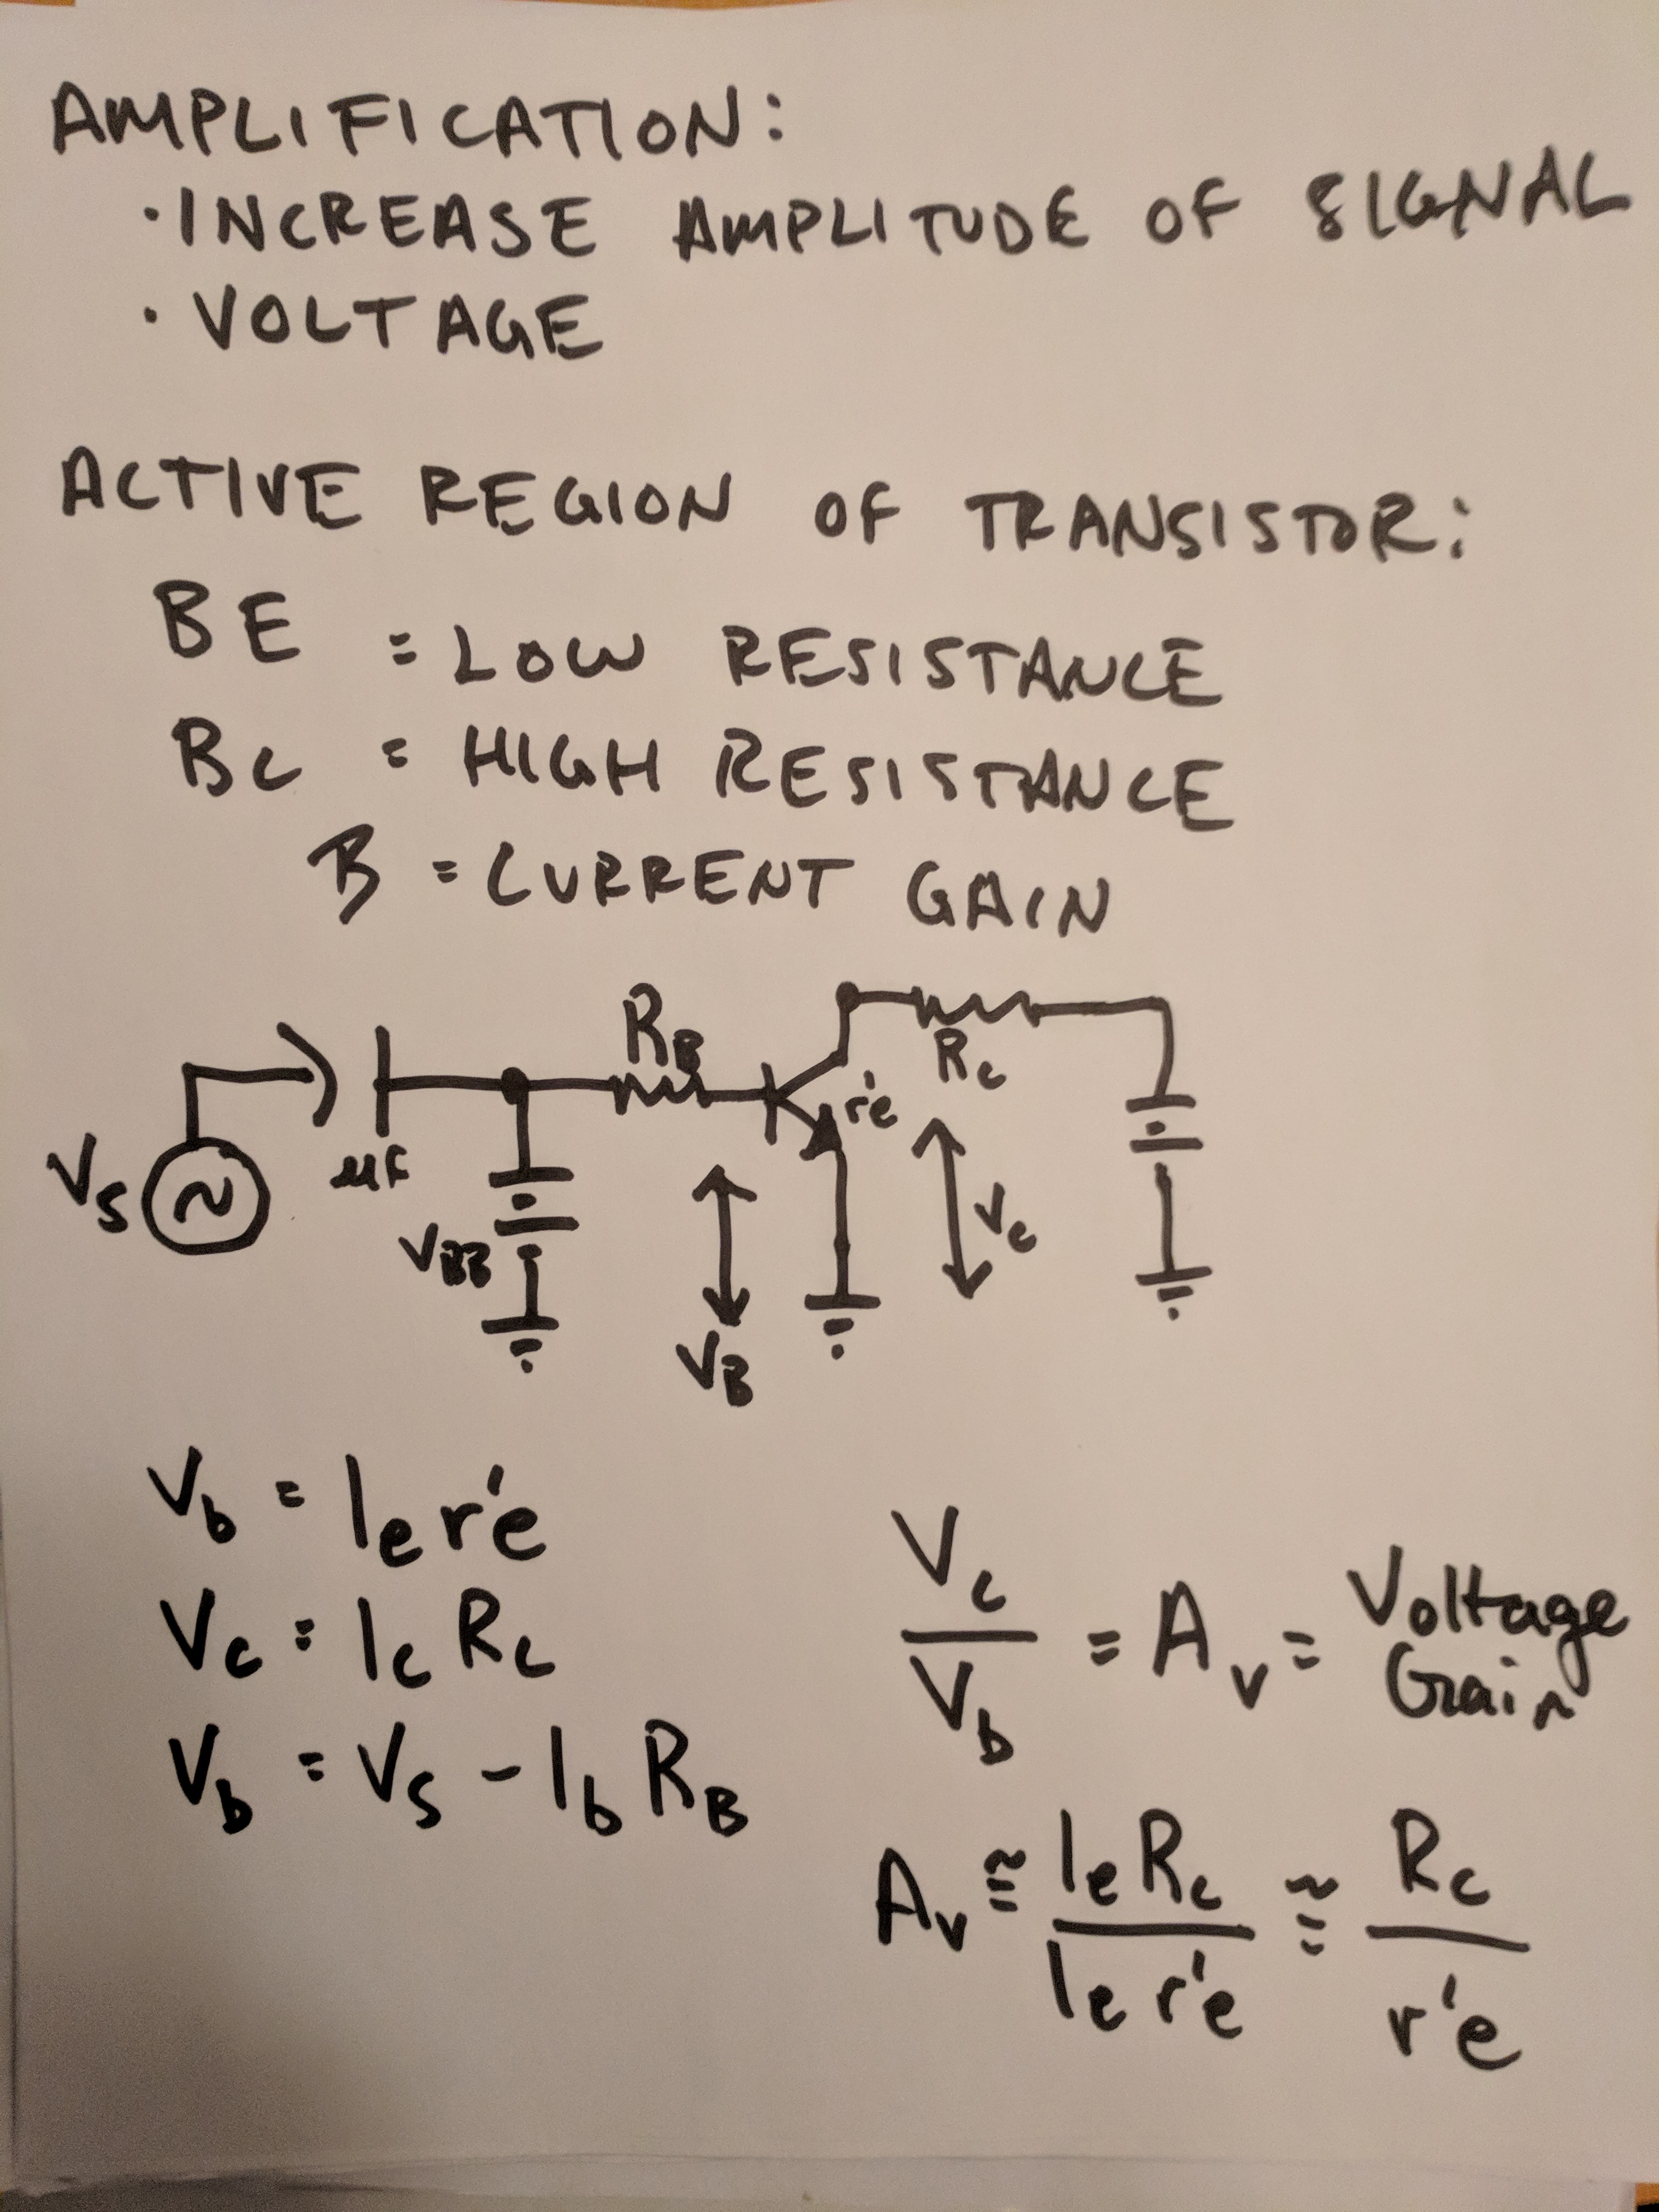 AMPLIFICATION:
· INCREASE AMPLITUDE OF SIGNAL
· VOLTAGE
ACTIVE REGION OF TRANSISTOR:
BE = LOW RESISTANCE
BC = HIGH RESISTANCE
B = CURRENT GAIN
RB
RC
r'e
VS
µF
VBB
VC
VB
Vb = Ie r'e
VC = IC RC
Vb = VS - Ib RB
VC / Vb = AV = Voltage Gain
AV ≅ Ie RC / Ie r'e ≅ RC / r'e